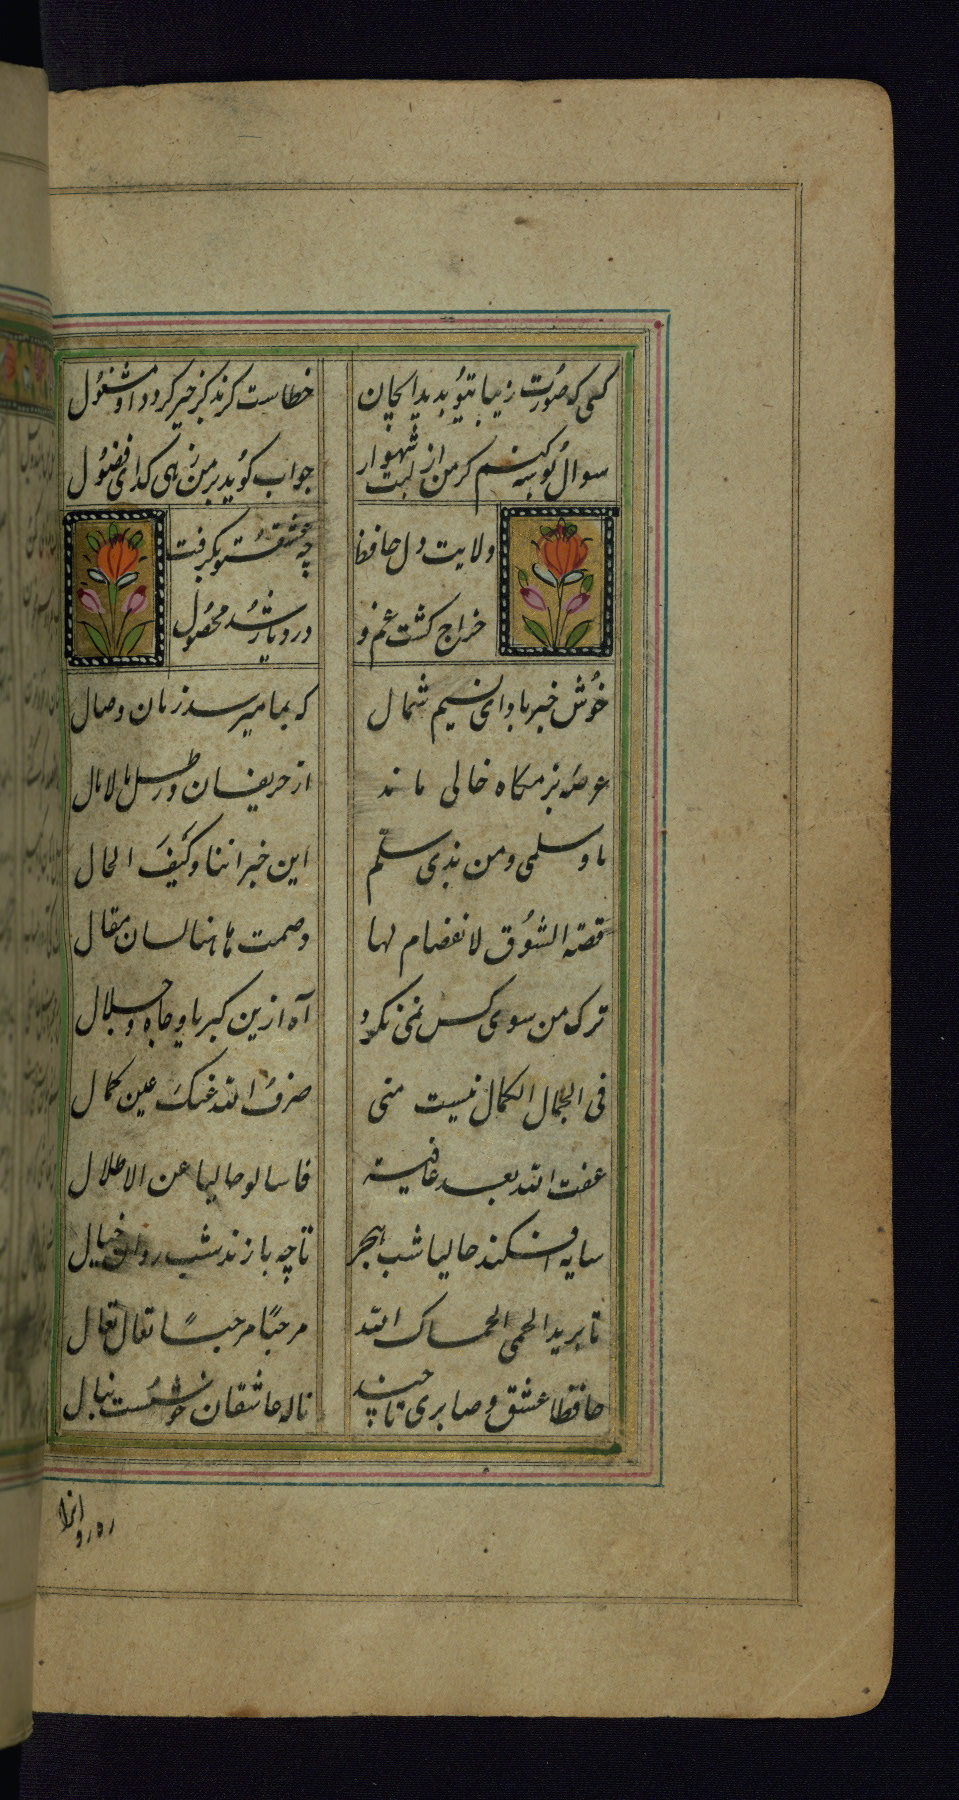 کسی که صورت زیبا بتو بدید ایجان خطاست کرند کز خیر کردد او مشغول
سوال بوسه کنم کر من از لبت شهوار جواب کوید بر من زهی کدای فضول
ولایت دل حافظ چه عشقت بگرفت
خراج کشت غم و درد یار شد محصول
خوش خبر باد ای نسیم شمال که بما میرسد زمان وصال
عرصه بزمکاه خالی ماند از حریفان و رطل مالامال
ما و سلمی و من بذی سلم این خبراننا و کیف الحال
قصه الشوق لانفصام لها و صمت هاهنا لسان مقال
ترک من سوی کس نمی نکرد آه ازین کبریا و جاه و جلال
فی الجمال الکمال نیست منی صرف الله عنک عین کمال
عفت الله بعد عافیة فاسالو حالیها عن الاطلال
سایه افکند حالیا شب هجر تا چه بازند شب روان خیال
تا برید الحمی الحماک الله مرحبًا مرحبًا تعال تعال
حافظا عشق و صابری تا چند ناله عاشقان خوشست بنال
ره روانرا